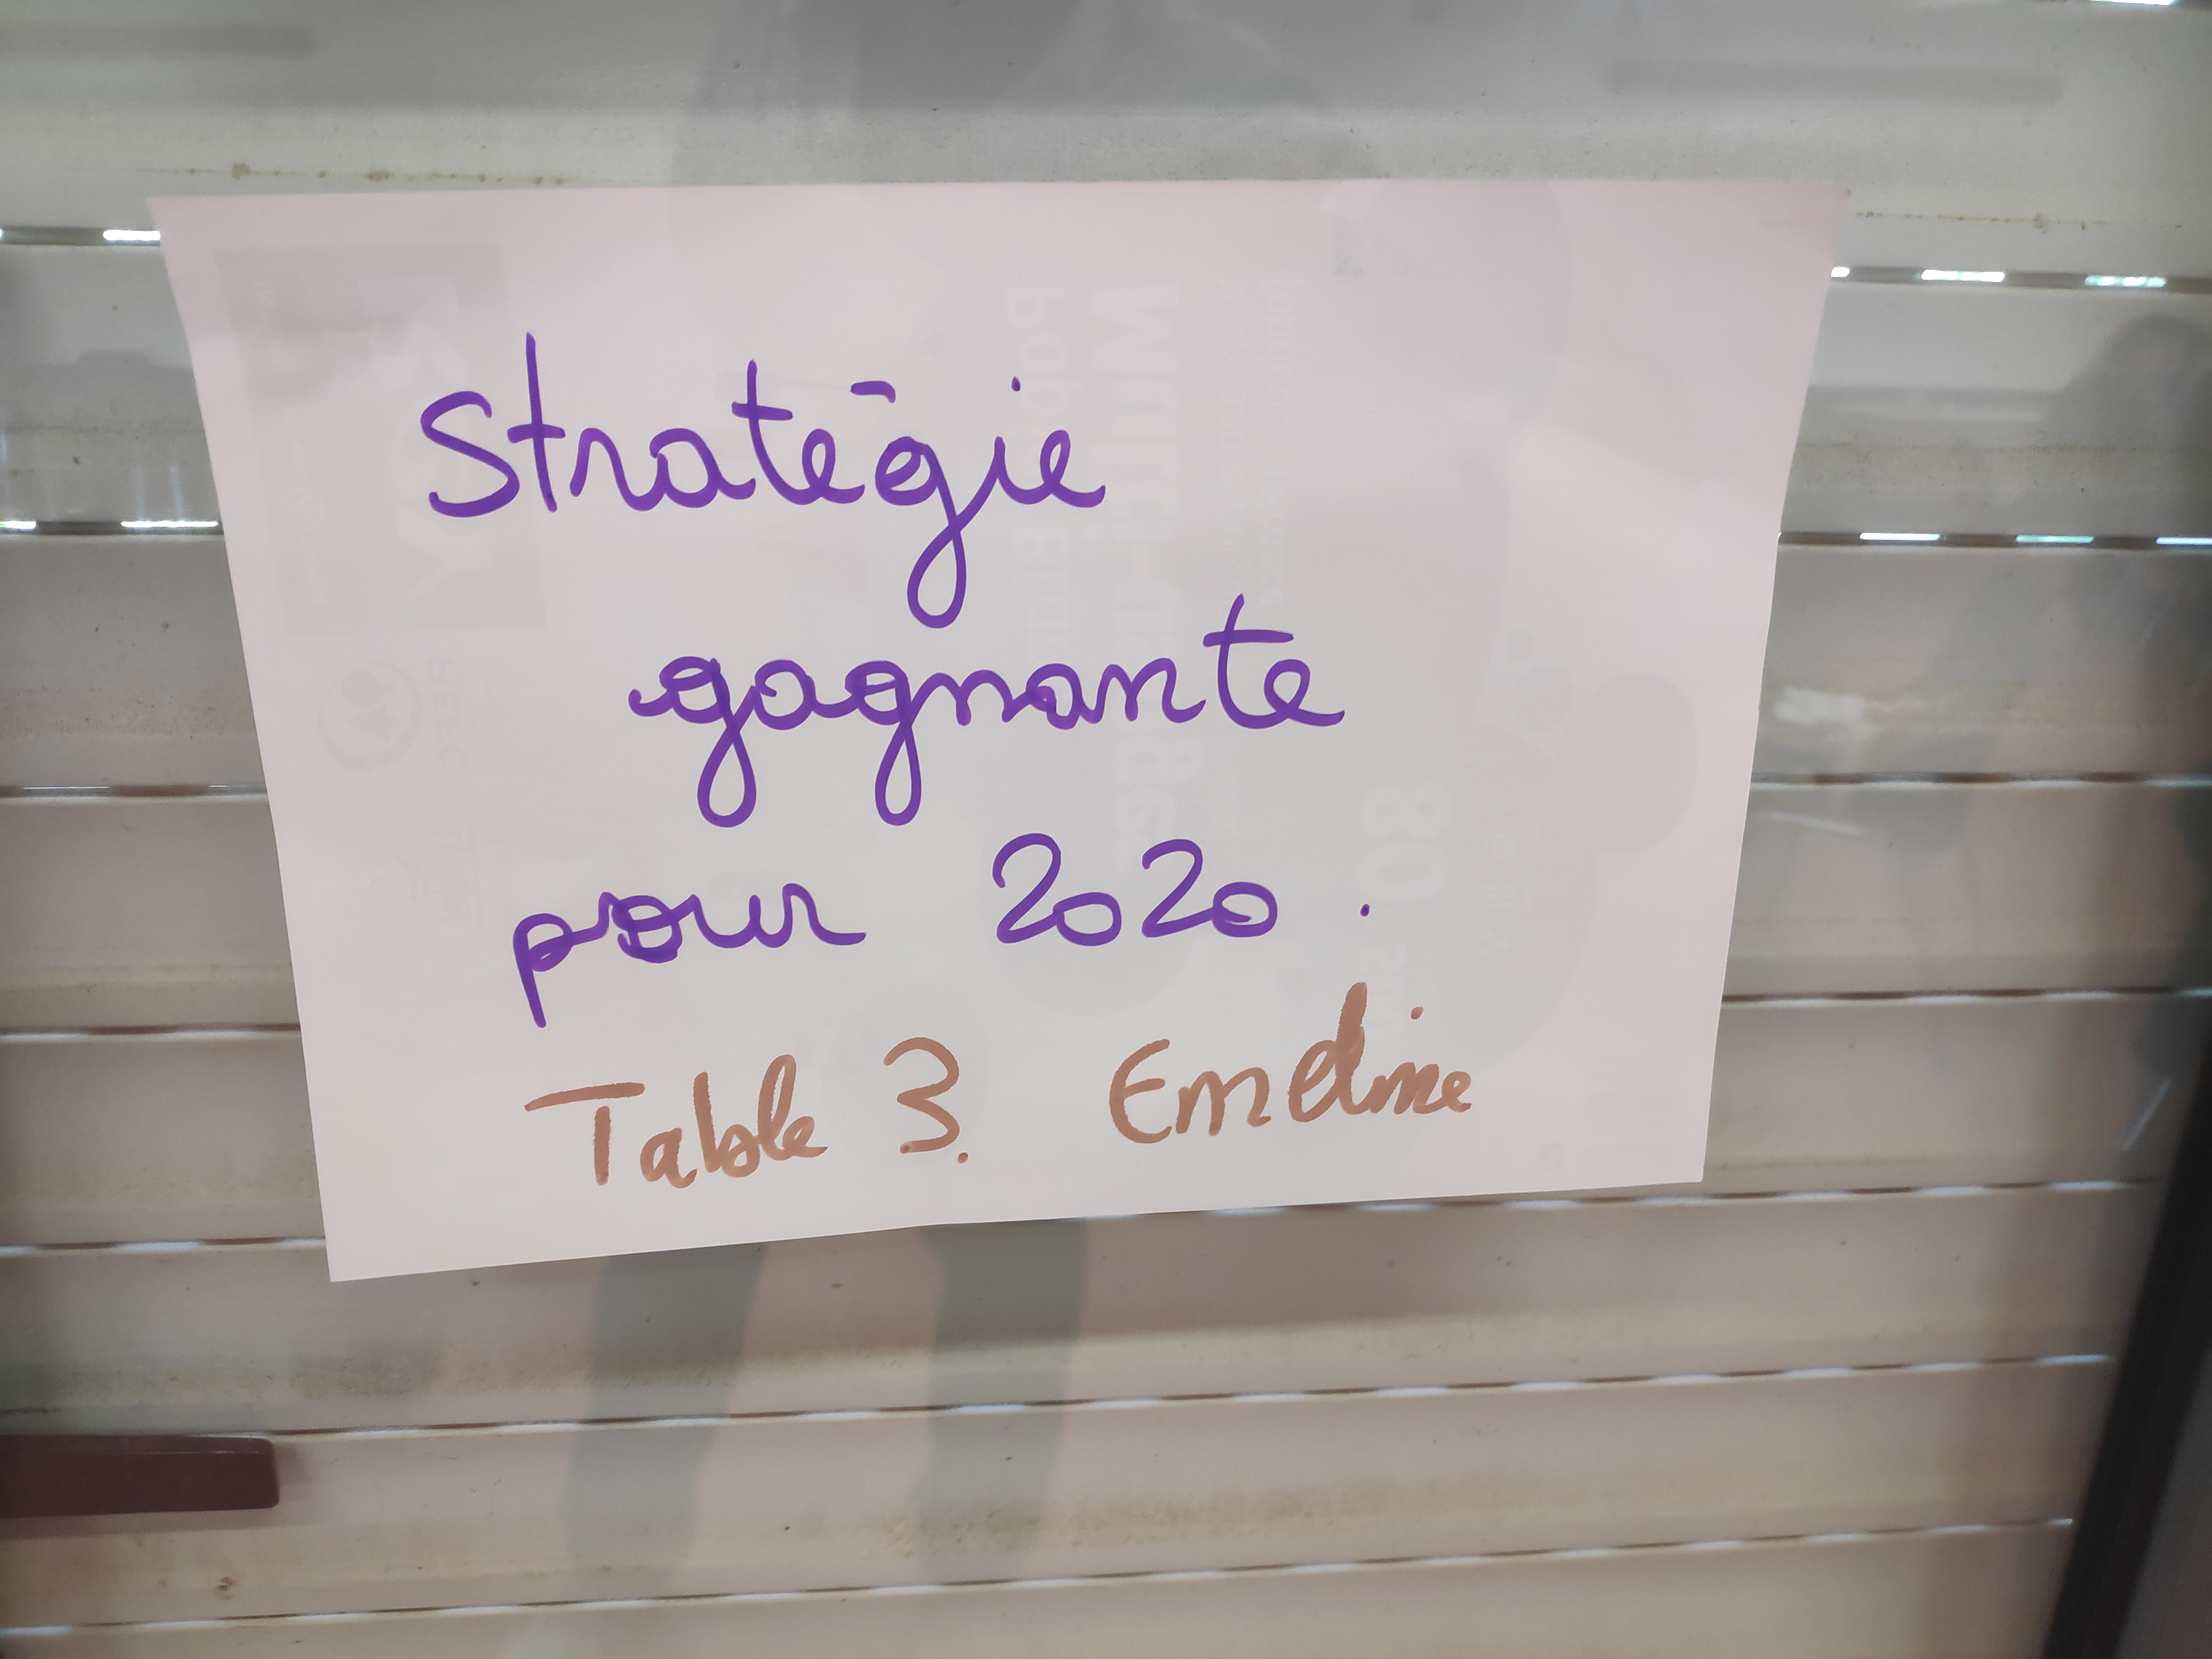 Stratégie
gagnante
pour 2020.
Table 3. Emeline